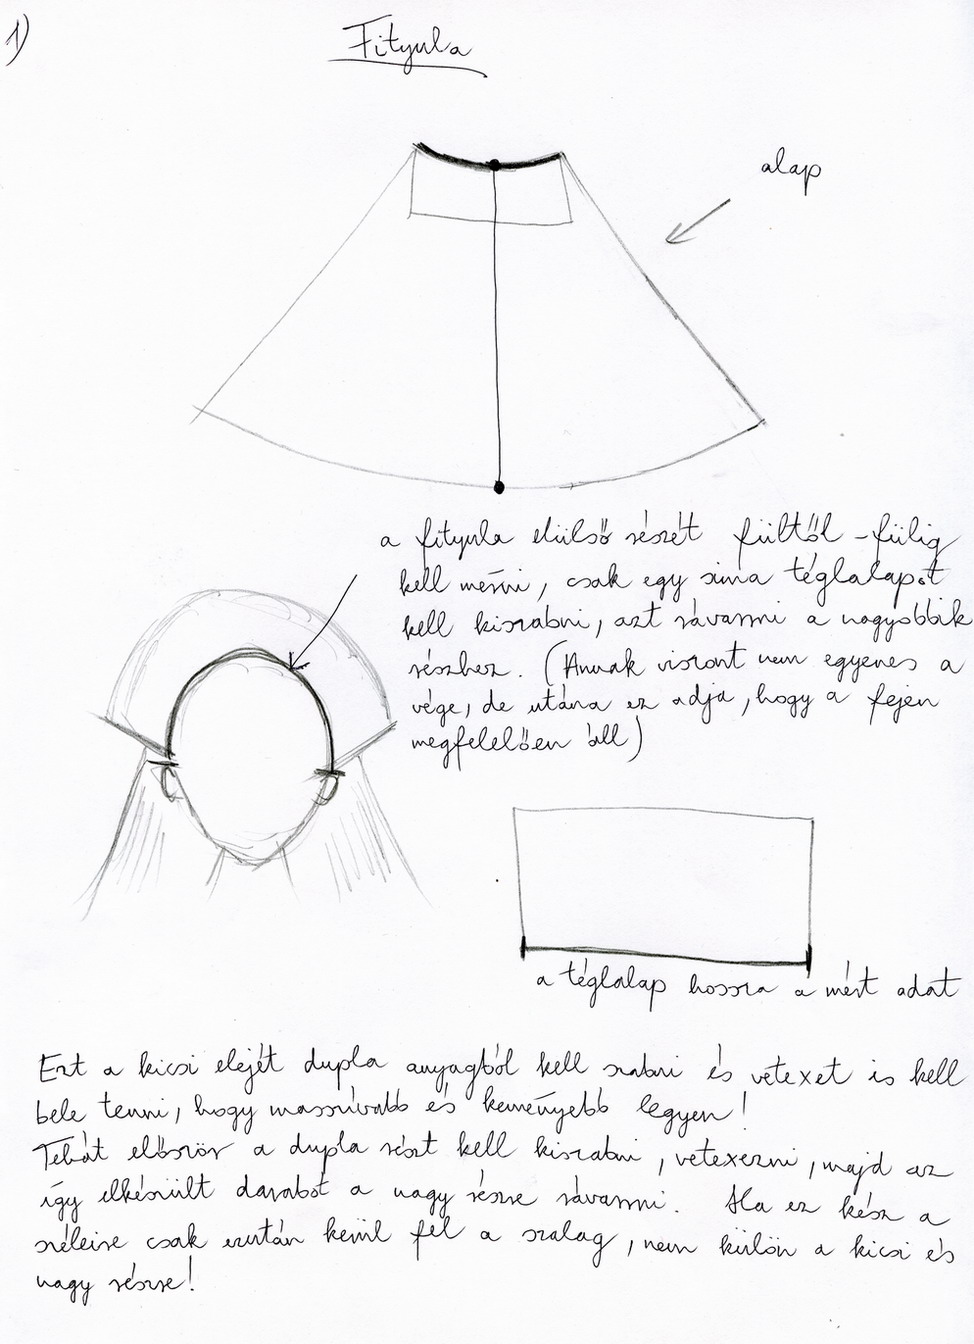 1)
Fityula
alap
a fityula elülső részét fültől-fülig
kell mérni, csak egy sima téglalapot
kell kiszabni, azt rávarrni a nagyobbik
részhez. (Annak viszont nem egyenes a
vége, de utána ez adja, hogy a fejen
megfelelően áll)
a téglalap hossza a mért adat
Ezt a kicsi elejét dupla anyagból kell szabni és vetexet is kell
bele tenni, hogy masszívabb és keményebb legyen!
Tehát először a dupla részt kell kiszabni, vetexezni, majd az
így elkészült darabot a nagy részre rávarrni. Ha ez kész a
széleire csak ezután kerül fel a szalag, nem külön a kicsi és
nagy részre!